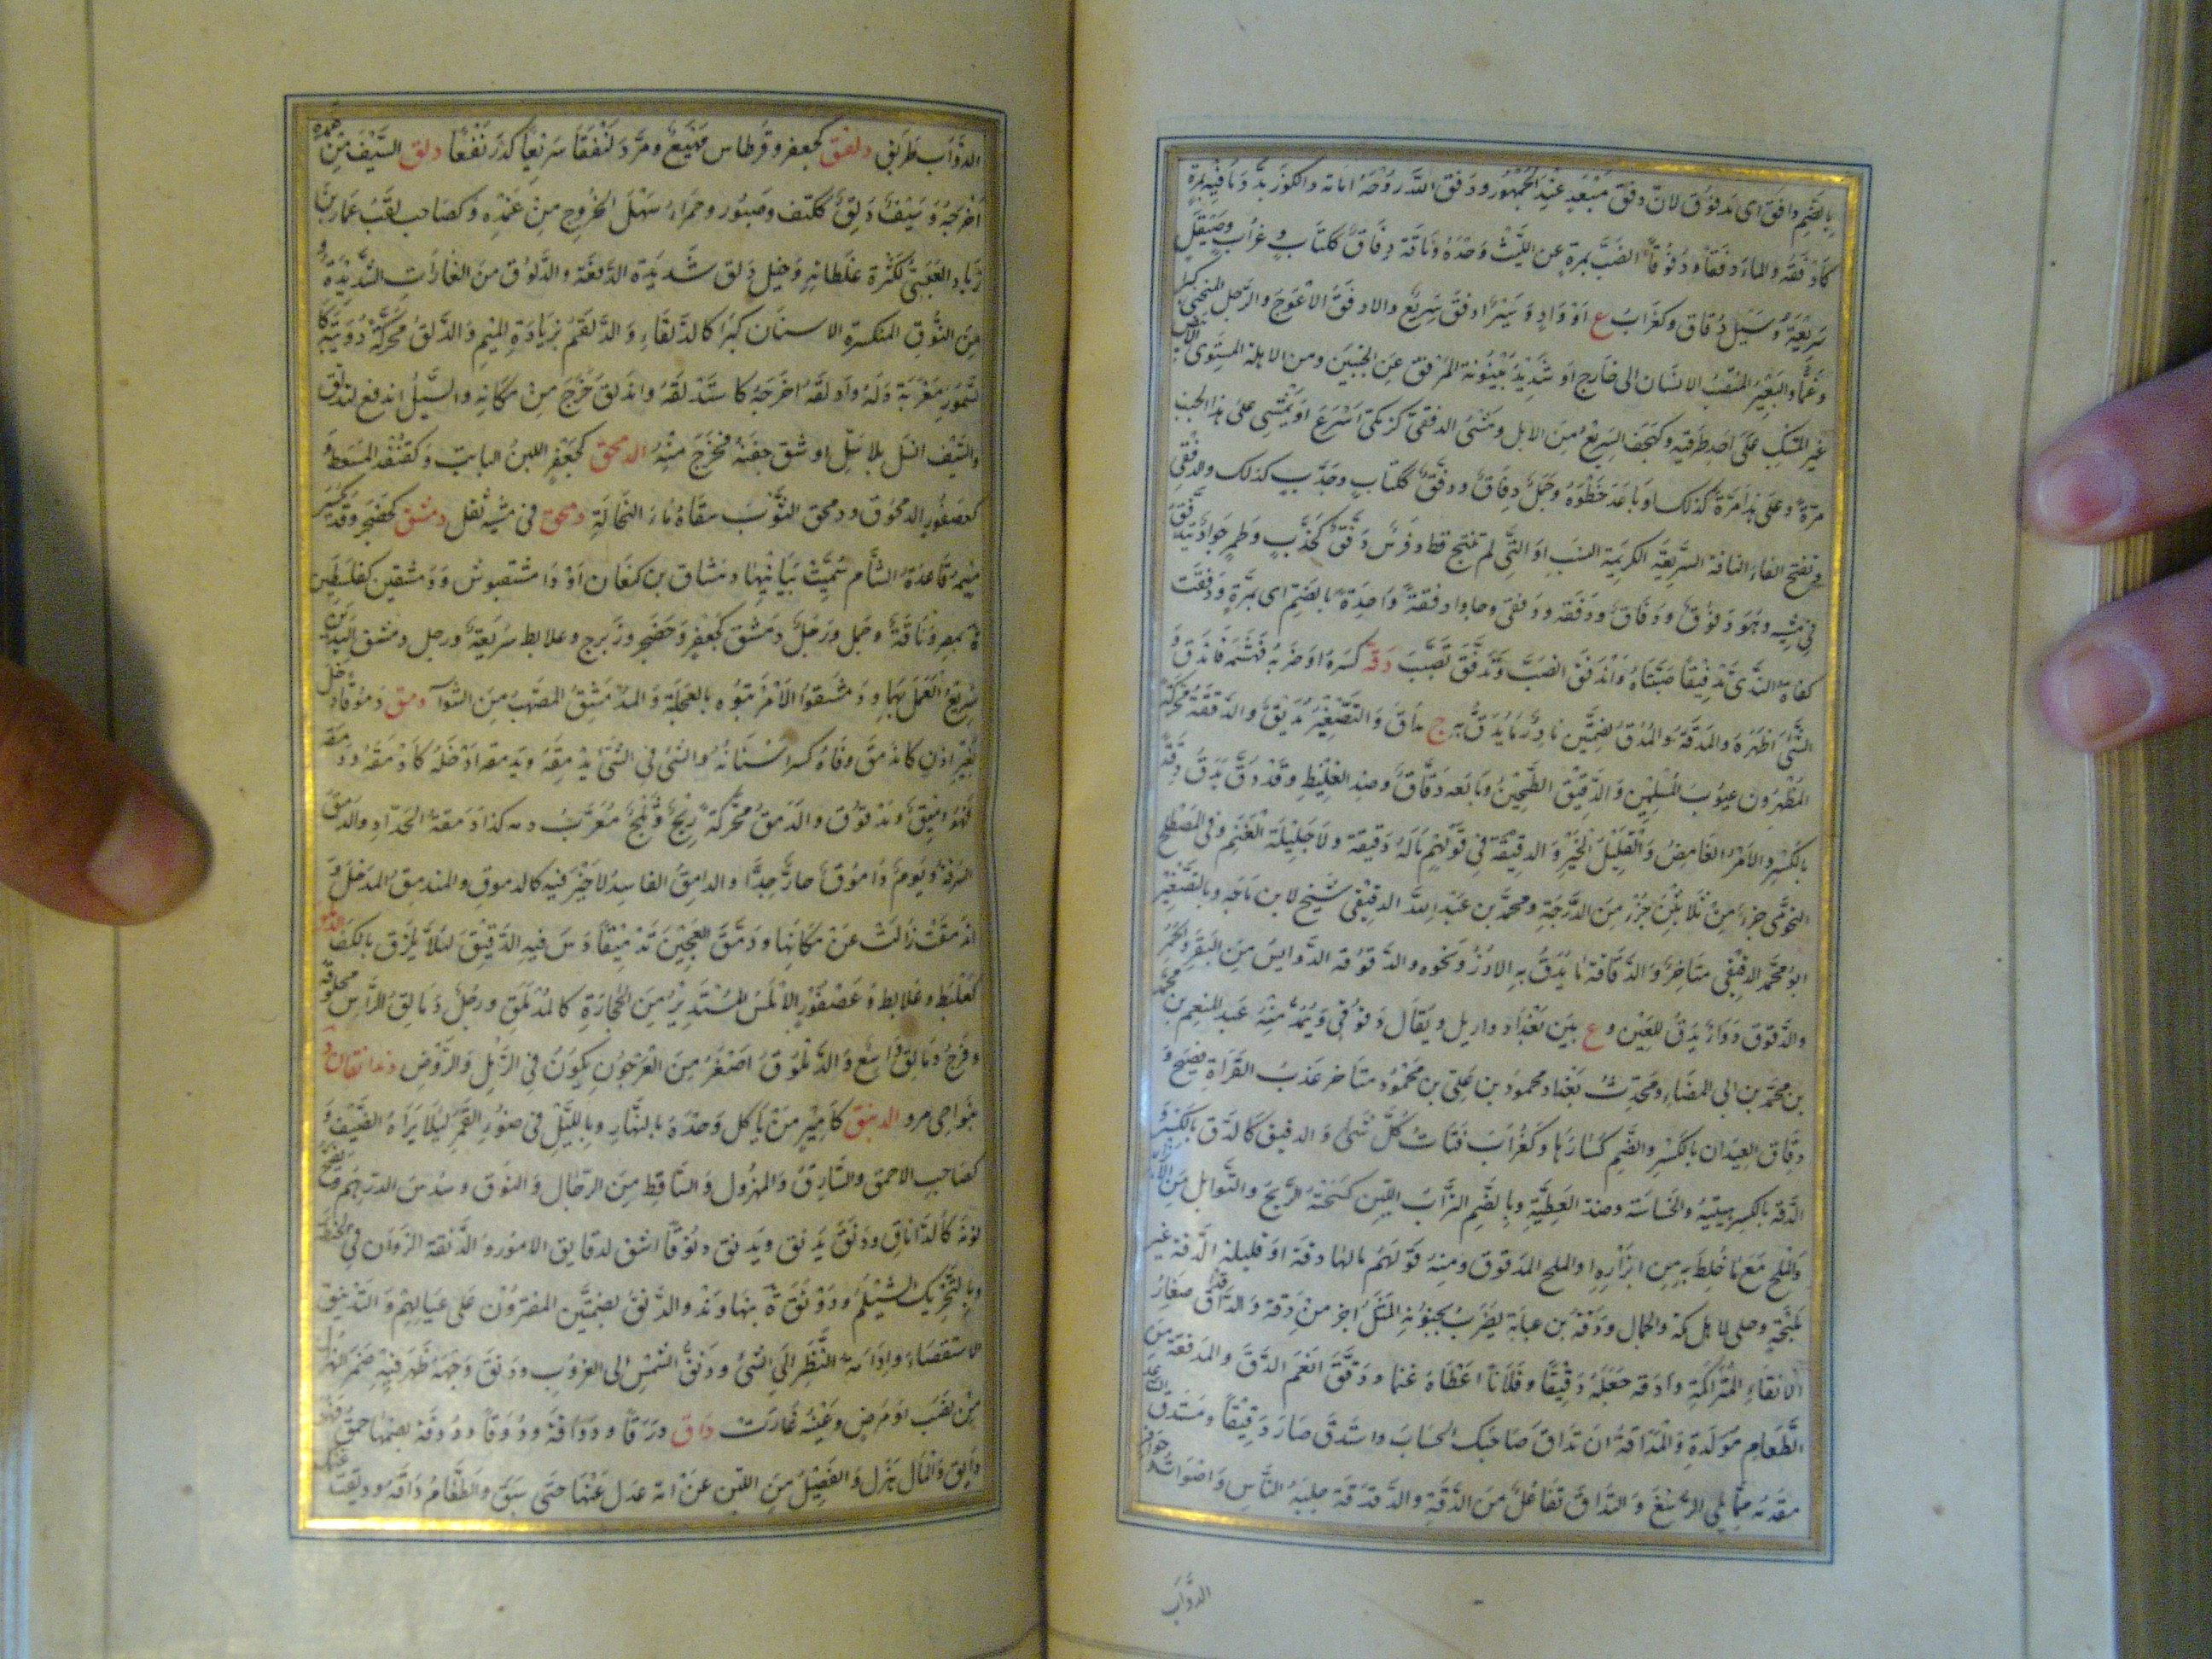 بالضم وافق اى مدفوق لان دفق متعد عند الجمهور ودفق الله روحه اماته والكوز بدد ما فيه بمرة
كادفقه والماء دفقا ودفوقا انصب بمرة عن الليث وحده وناقة دفاق ككتاب وغراب وصيقل
سريعة وسيل دفاق وكغراب ع او واد وسير ادفق سريع والادفق الاعوج والرجل المنحنى كبرا
وغما والبعير المنتصب الاسنان الى خارج او شديد بينونة المرفق عن الجنبين ومن الاهلة المستوى الابيض
غير المتنكب على احد طرفيه وكهجف السريع من الابل ومشى الدفقى كزمكى اسرع او تمشى على هذا الجنب
مرة وعلى هذا مرة كذلك او باعد خطوه وجمل دفاق ودفق ككتاب وخدب كذلك والدفقى
وتفتح الفاء الناقة السريعة الكريمة النسب او التى لم تنتج قط وفرس دفق كخدب وطمر جواد يتدفق
فى مشيه وهو دفوق ودفاق ودفقة ودفقى وجاؤا دفقة واحدة بالضم اى بمرة ودفقت
كفاه الندى تدفيقا صبتاه واندفق انصب وتدفق تصبب دقه كسره او ضربه فهشمه فاندق و
الشئ اظهره والمدقة والمدق بضمتين نادر ما يدق به ج مداق والتصغير مديق والدققة محركة
المظهرون عيوب المسلمين والدقيق الطحين وبائعه دقاق وضد الغليظ وقد دق يدق دقة
بالكسر والامر الغامض والقليل الخير والدقيقة فى قولهم ماله دقيقة ولا جليلة الغنم وفى المصطلح
النجومى جزء من ثلاثين جزء من الدرجة ومحمد بن عبد الله الدقيقى شيخ لابن ماجه وبالتصغير
ابو محمد الدقيقى متاخر والدقاقة ما يدق به الارز ونحوه والدقوقة الدوايس من البقر والحمر
والدقوق دواء يدق للعين و ع بين بغداد واربل ويقال دقوقى ويمد منه عبد المنعم بن محمد
بن محمد بن ابى المضاء ومحدث بغداد محمود بن على بن محمود متاخر عذب القراءة فصيح و
دقاق العيدان بالكسر والضم كسارها وكغراب فتات كل شئ والدقيق كالدق بالكسر و
الدقة بالكسر هيئته والخساسة وضد العظيمة وبالضم التراب اللين كسحته الريح والتوابل من الابزار
والملح مع ما خلط به من ابزاره او الملح المدقوق ومنه قولهم مالها دقة او قليلة الدقة غير
مليحة وحلى لاهل مكة والجمال ودقة بن عباية يضرب بجنونه المثل اجن من دقة والدقاق صغار
الانقاء المتراكمة وادقه جعله دقيقا وفلانا اعطاه غنما ودقق انعم الدق والمدققة من
الطعام مولدة والمداقة ان تداق صاحبك الحساب واستدق صار دقيقا ومستدق الساعد
مقدمه مما يلى الرسغ والتداق تفاعل من الدقة والدقدقة جلبة الناس واصوات حوافر
الدواب
الدواب طربقى دلعق كجعفر وقرطاس مهيع ومر دلنفقا سريعا كدرنفعا دلق السيف من غمده
اخرجه وسيف دلق ككتف وصبور وحمراء سهل الخروج من غمده وكصاحب لقب عمارة بن
زياد العبسى لكثرة غلطانه وخيل دلق شديدة الدفعة والدلوق من الغارات الشديدة و
من النوق المنكسرة الاسنان كبرا كالدلقاء والدلقم بزيادة الميم والدلق محركة دويبة كا
لسمور معربة دله وادلقه اخرجه كاستدلقه واندلق خرج من مكانه والسيل اندفع كتدلق
والسيف انسل بلا سل او شق جفنه فخرج منه الدمحق كجعفر اللبن البائت وكقنفذ المسعط و
كعصفور الدمحوق ودمحق الثوب سقاه ماء النخالة دمحق فى مشيه ثقل دمشق كحضجر وقد يكسر
ميمه قاعدة الشام سميت ببانيها دمشاق بن كنعان او دامشقيوش ودمشقين كفلسطين
ة بمصر وناقة وجمل ورجل دمشق كجعفر وحضجر وزبرج وعلابط سريعة ورجل دمشق اليدين
سريع العمل بهما ودمشقوا الامر اتبوه بالعجلة والمدمشق المضهب من الشواء دمق دموقا دخل
بغير اذن كاندمق وفاه كسر اسنانه والشئ فى الشئ يدمقه ويدمقه ادخله كادمقه ودمقه
فهو دميق ومدموق والدمق محركة ريح وثلج معرب دمه كذا دمقة الحداد والدمق
السرقة ويوم داموق حار جدا والدامق الفاسد لا خير فيه كالدموق والمندمق المدخل و
اندمقت زالت عن مكانها ودمق العجين تدميقا دس فيه الدقيق لئلا يلزق بالكف
كعلبط وعلابط وعصفور الاملس المستدير من الحجارة كالمدملق ورجل دمالق الرأس محلوقه
وفرج دمالق واسع والدملوق اصغر من العرجون يكون فى الرمل والروض دندانقان د
بنواحى مرو الدنيق كامير من ياكل وحده بالنهار وبالليل فى ضوء القمر لئلا يراه الضيف و
كصاحب الاحمق والسارق والمهزول والساقط من الرجال والنوق وسدس الدرهم وتفتح
نونه كالداناق ودنق يدنق ويدنق دنوقا اسف لدقايق الامور والدنقة الزؤان فى الحنطة
وبالتحريك الشيلم ودونق ة بنهاوند والدنق بضمتين المقترون على عيالهم والتدنيق
الاستقصاء وادامة النظر الى الشئ ودنق الشمس الى الغروب ودنق وجهه ظهر فيه ضمر الهزال
من نصب او مرض وعينه غارت داق دوقا ودواقة ودؤوقا ودوقة بضمها حمق فهو
دايق والمال هزل والفصيل من اللبن عن امه عدل عنها حتى سنق والطعام ذاقه ودئقت غنمك